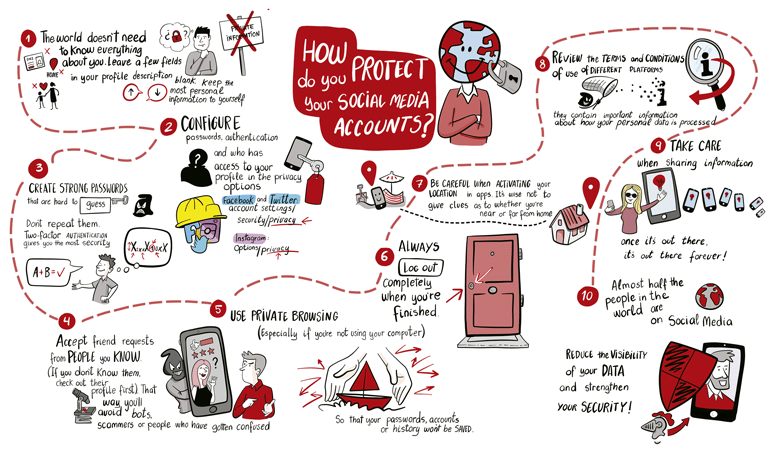 HOW
do you PROTECT
your SOCIAL MEDIA
ACCOUNTS?
1 The world doesn't need
to know everything
about you. Leave a few fields
in your profile description
blank. Keep the
most personal
information to yourself
HOME
PRIVATE
INFORMATION
2 CONFIGURE
passwords, authentication
and who has
access to your
profile in the privacy
options
Facebook and Twitter
account settings/
security/privacy
Instagram:
Options/privacy
3
CREATE STRONG PASSWORDS
that are hard to guess
Dont repeat them.
Two-factor AUTHENTICATION
gives you the most security
A+B=✓
4
Accept friend requests
from PEOPLE you KNOW.
(If you don't know them,
check out their
profile first) That
way you'll
avoid bots,
scammers or people who have gotten confused
?
5 USE PRIVATE BROWSING
(Especially if you're not using your computer)
So that your passwords, accounts
or history won't be SAVED.
6 ALWAYS
Log out
completely
when you're
finished
7 BE CAREFUL WHEN ACTIVATING your
LOCATION in apps. It's wise not to
give clues as to whether you're
near or far from home
8
REVIEW the TERMS and CONDITIONS
of use of DIFFERENT PLATFORMS
i
they contain important information
about how your personal data is processed
9 TAKE CARE
when sharing information
once it's out there,
it's out there forever!
10 Almost half the
people in the
world are
on Social Media
REDUCE the VISIBILITY
of your DATA
and strengthen
your SECURITY!